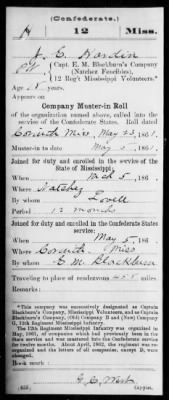 (Confederate.)
H 12 Miss.
J. C. Hardin
Pvt, Capt. E. M. Blackburn's Company
(Natchez Fencibles),
12 Reg't Mississippi Volunteers.*
Age years.
Appears on
Company Muster-in Roll
of the organization named above, called into the
service of the Confederate States. Roll dated
Corinth Miss, May 23, 1861.
Muster-in to date May 5, 1861.
Joined for duty and enrolled in the service of the
State of Mississippi:
When Mch 5, 186 .
Where Natchez
By whom Lovell
Period 12 months
Joined for duty and enrolled in the Confederate States
service:
When May 5, 186 .
Where Corinth Miss
By whom E. M. Blackburn
Traveling to place of rendezvous miles.
Remarks:
*This company was successively designated as Captain
Blackburn's Company, Mississippi Volunteers, and as Captain
Blackburn's Company, (Old) Company B and (New) Company
G, 12th Regiment Mississippi Infantry.
The 12th Regiment Mississippi Infantry was organized in
May, 1861, of companies which had previously been in the
State service and was mustered into the Confederate service
for twelve months. About April, 1862, the regiment was re-
organized and the letters of all companies, except D, were
changed.
Book mark:
Copyist.